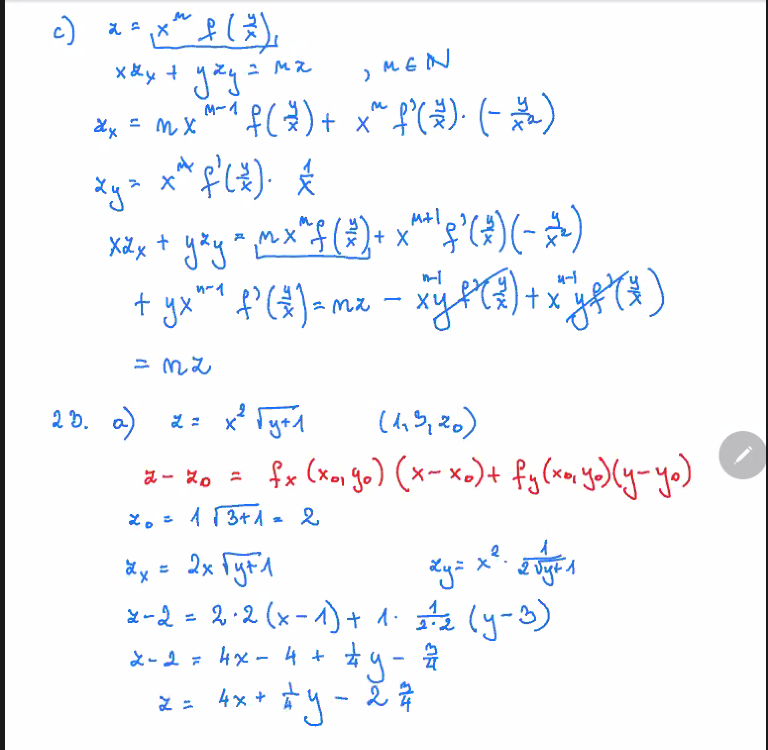 c) z = x^n f(y/x)
xz_x + yz_y = nz , n ∈ N
z_x = nx^{n-1} f(y/x) + x^n f'(y/x) · (-y/x²)
z_y = x^n f'(y/x) · 1/x
xz_x + yz_y = nx^n f(y/x) + x^{n+1} f'(y/x) (-y/x²)
+ yx^{n-1} f'(y/x) = nz - x^{n-1}y f'(y/x) + x^{n-1} y f'(y/x)
= nz
23. a) z = x² √(y+1) (1, 3, z₀)
z - z₀ = f_x (x₀, y₀) (x - x₀) + f_y (x₀, y₀)(y - y₀)
z₀ = 1 √(3+1) = 2
z_x = 2x √(y+1) z_y = x² · 1/(2√(y+1))
z - 2 = 2·2 (x - 1) + 1 · 1/(2·2) (y - 3)
z - 2 = 4x - 4 + 1/4 y - 3/4
z = 4x + 1/4 y - 2 3/4